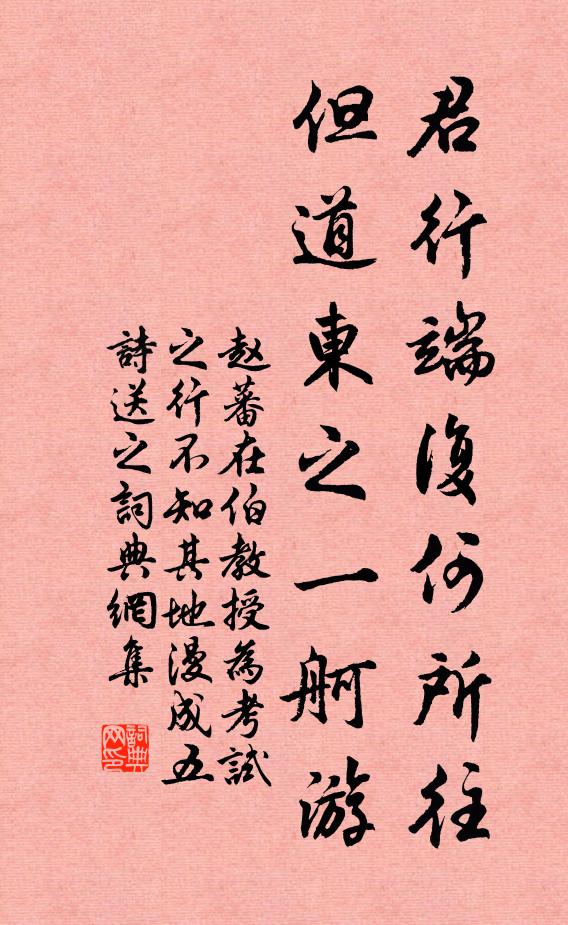 君行端復何所往
但道東之一舸游
赵蕃在伯教授為考試
之行不知其地漫成五
詩送之詞典網集
詞典
网印